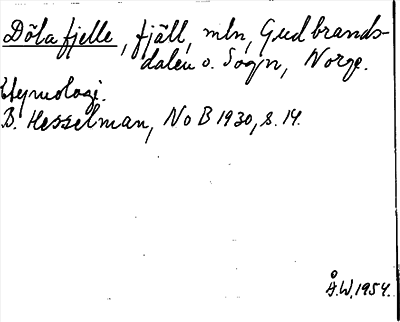 Döla fjelle, fjäll, mln, Gudbrands-
dalen o. Sogn, Norge.
Etymologi.
B. Hesselman, No B 1930, s. 14.
Å.W. 1954.